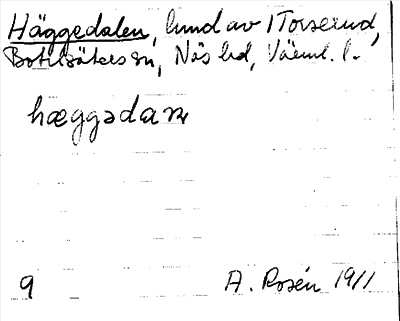 Häggedalen, lund av 1 Torserud,
Botilsäters sn, Näs hd, Värml. l.
hæggədaɳ
9 A. Rosén 1911